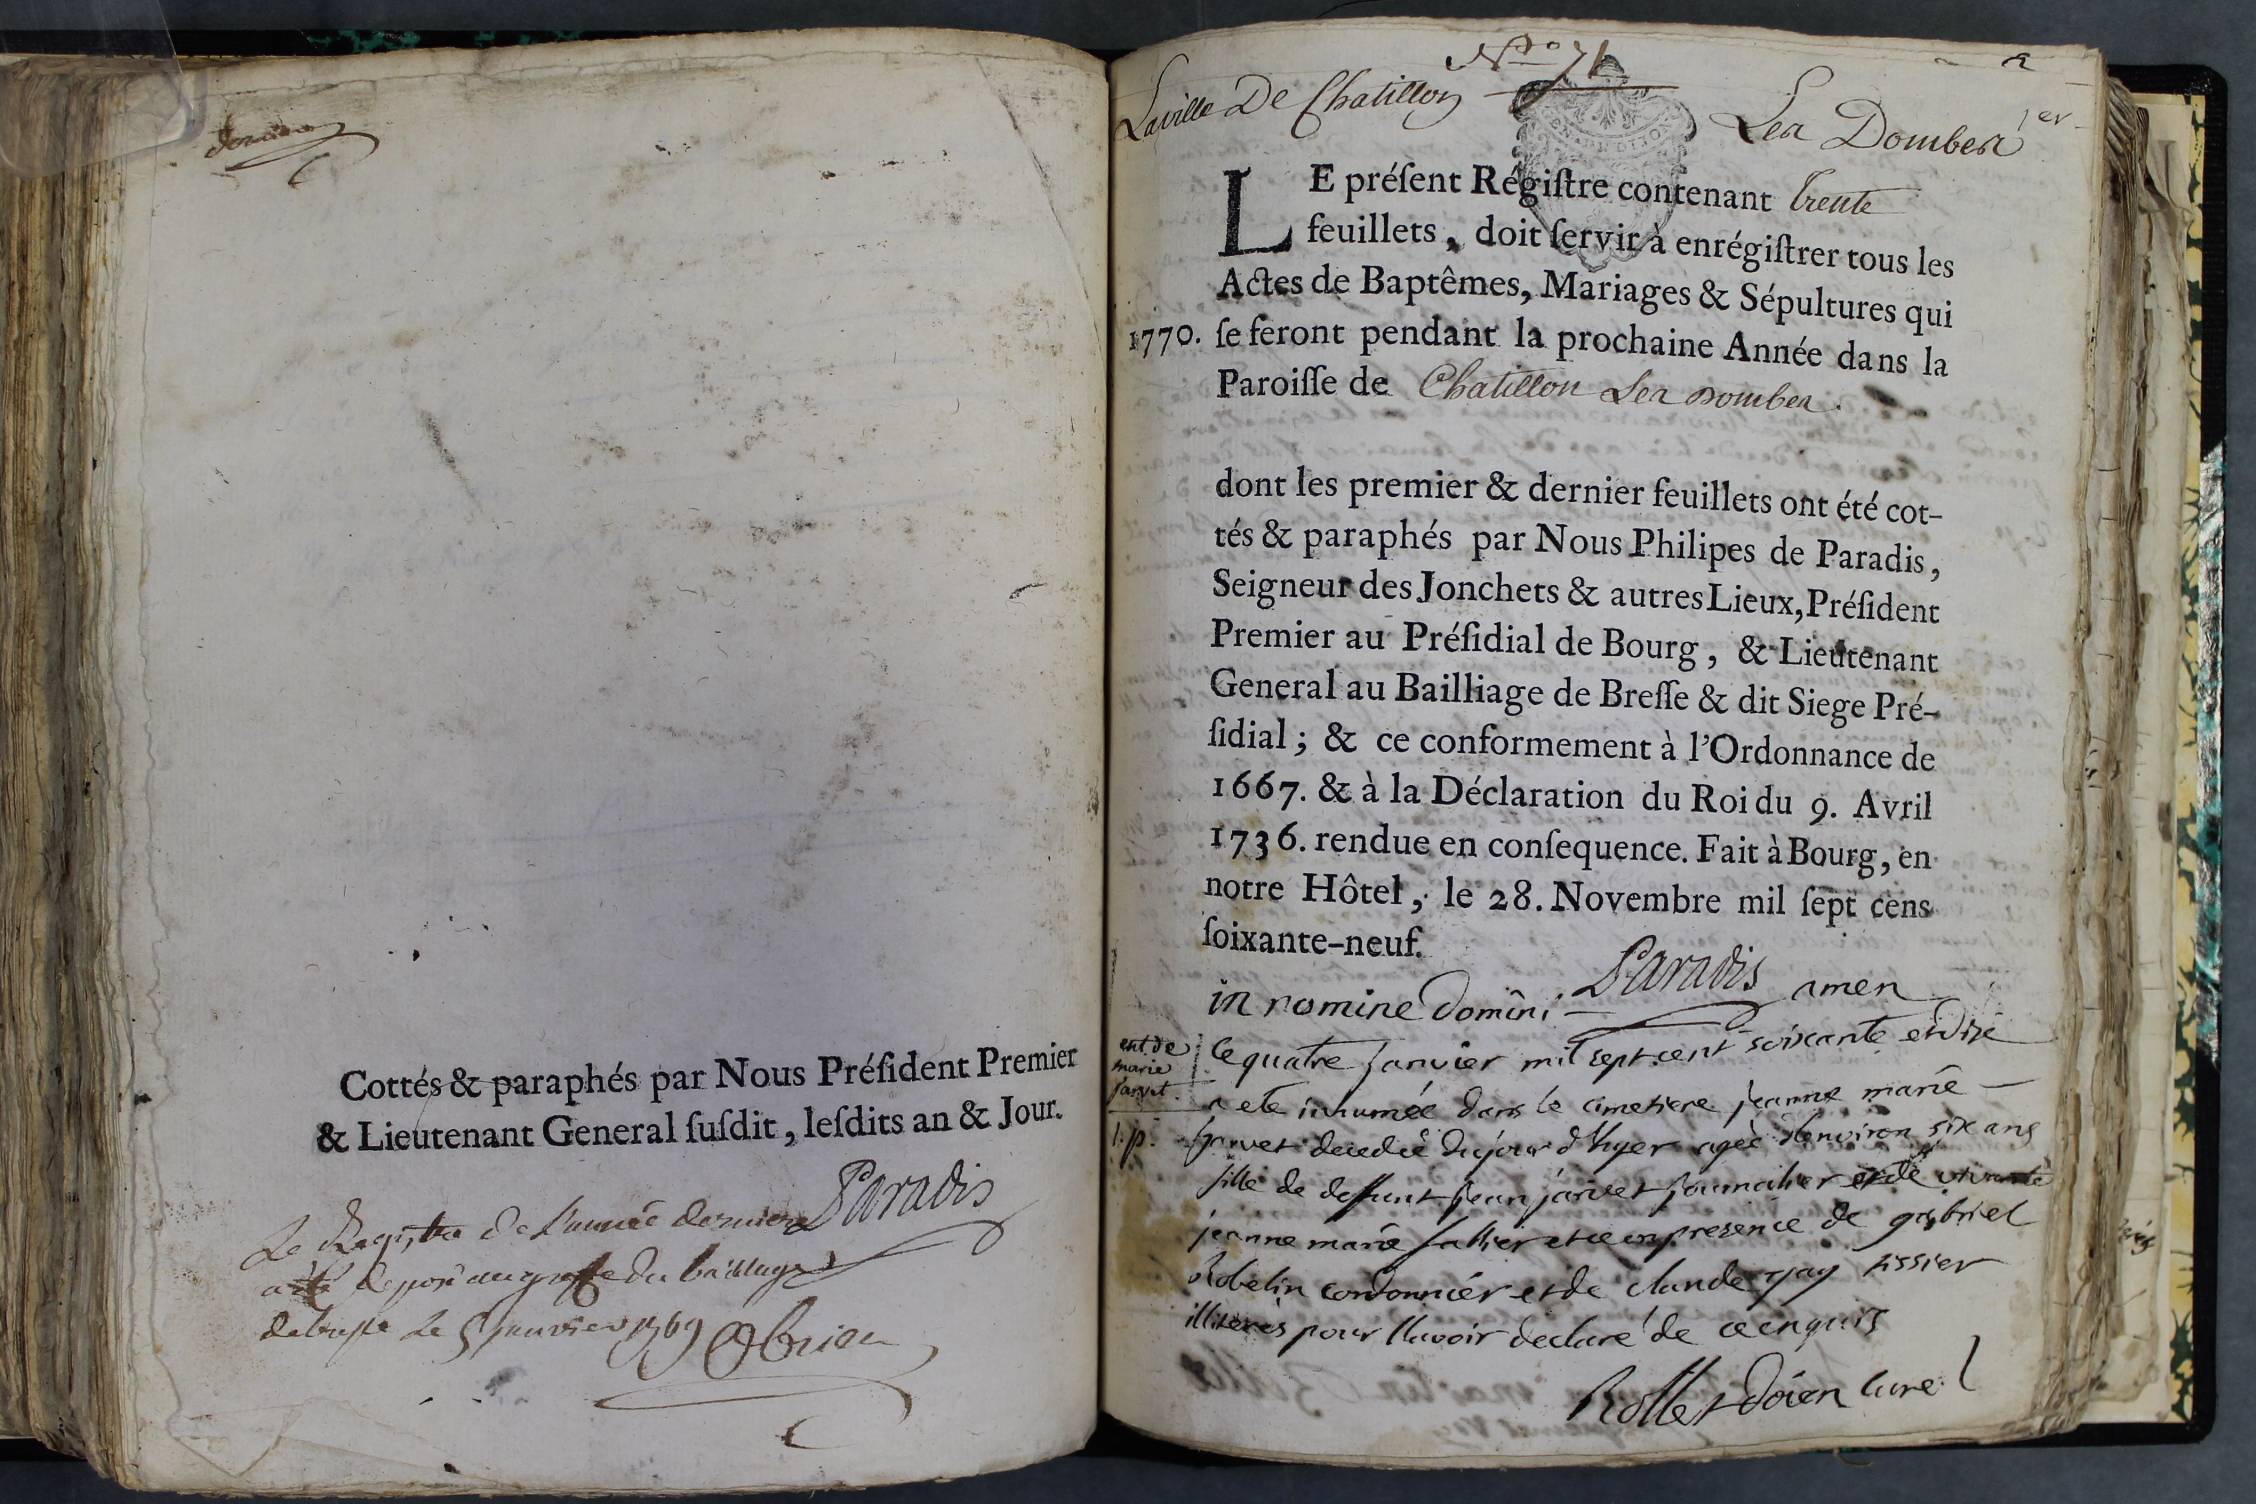 dernier
Cottés & paraphés par Nous Préſident Premier
& Lieutenant General ſuſdit, leſdits an & Jour.
Paradis
Le Registre de l'année derniere
a été deposé au greffe du bailliage
de bresse le 5 janvier 1769 Obrien
N.º 71
2
La ville De Chatillon
Les Dombes
1er
LE préſent Régiſtre contenant trente
feuillets, doit ſervir à enrégiſtrer tous les
Actes de Baptêmes, Mariages & Sépultures qui
1770. ſe feront pendant la prochaine Année dans la
Paroiſſe de Chatillon Les Dombes.
dont les premier & dernier feuillets ont été cot-
tés & paraphés par Nous Philipes de Paradis,
Seigneur des Jonchets & autres Lieux, Préſident
Premier au Préſidial de Bourg, & Lieutenant
General au Bailliage de Breſſe & dit Siege Pré-
ſidial; & ce conformement à l'Ordonnance de
1667. & à la Déclaration du Roi du 9. Avril
1736. rendue en conſequence. Fait à Bourg, en
notre Hôtel, le 28. Novembre mil ſept cens
ſoixante-neuf.
Paradis
in nomine domini amen
ent. de
marie
jarvet.
le quatre janvier mil sept cent soixante et dix
a ete inhumée dans le cimetiere jeanne marie
jarvet decedée du jour d'hyer agée d'environ six ans
fille de deffunt jean jarvet journalier et de vivante
jeanne marie et ce en presence de gabriel
Robelin cordonnier et de claude tissier
illiterés pour l'avoir declaré de ce enquis
Rollet doien curé